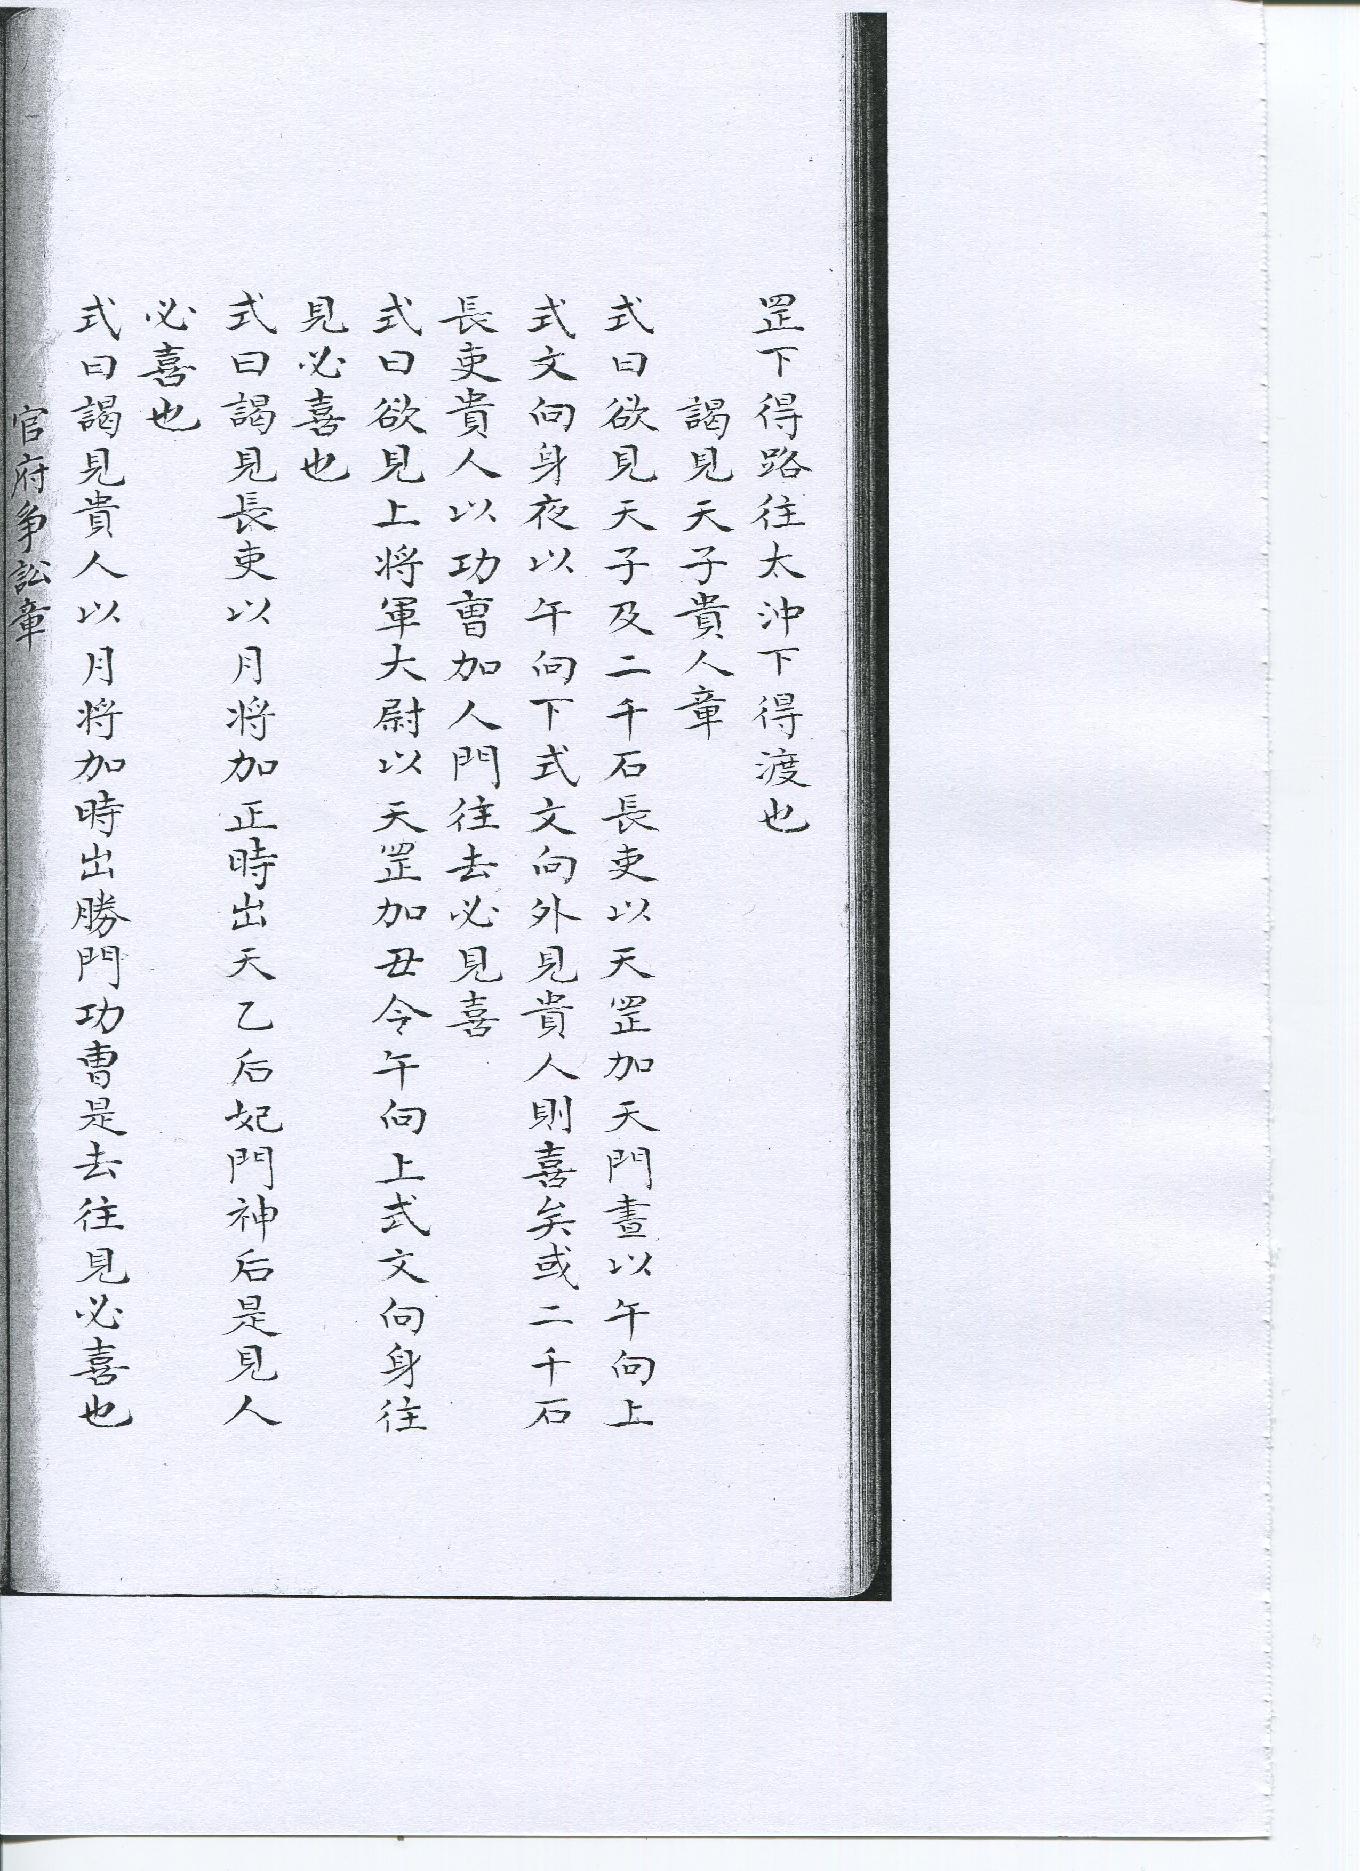 罡下得路往太沖下得渡也
謁見天子貴人章
式曰欲見天子及二千石長吏以天罡加天門晝以午向上
式文向身夜以午向下式文向外見貴人則喜矣或二千石
長吏貴人以功曹加人門往去必見喜
式曰欲見上将軍大尉以天罡加丑令午向上式文向身往
見必喜也
式曰謁見長吏以月将加正時出天乙后妃門神后是見人
必喜也
式曰謁見貴人以月将加時出勝門功曹是去往見必喜也
官府争訟章